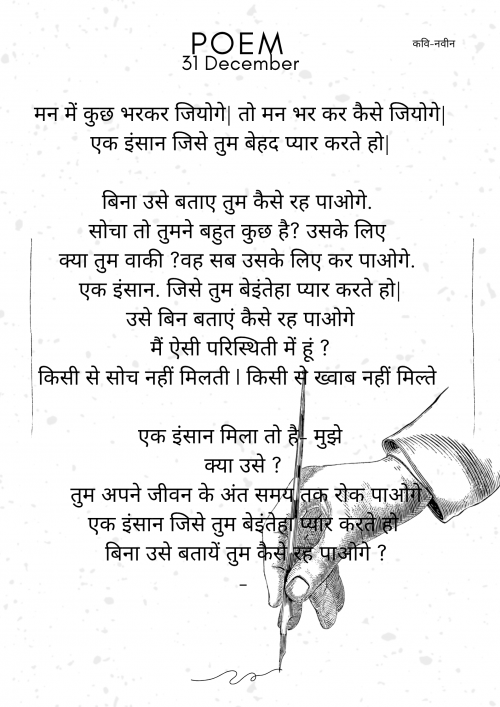 POEM
31 December
कवि-नवीन
मन में कुछ भरकर जियोगे| तो मन भर कर कैसे जियोगे|
एक इंसान जिसे तुम बेहद प्यार करते हो|
बिना उसे बताए तुम कैसे रह पाओगे.
सोचा तो तुमने बहुत कुछ है? उसके लिए
क्या तुम वाकी ?वह सब उसके लिए कर पाओगे.
एक इंसान. जिसे तुम बेइंतेहा प्यार करते हो|
उसे बिन बताएं कैसे रह पाओगे
मैं ऐसी परिस्थिती में हूं ?
किसी से सोच नहीं मिलती | किसी से ख्वाब नहीं मिल्ते
एक इंसान मिला तो है- मुझे
क्या उसे ?
तुम अपने जीवन के अंत समय तक रोक पाओगे
एक इंसान जिसे तुम बेइंतेहा प्यार करते हो
बिना उसे बतायें तुम कैसे रह पाओगे ?
–